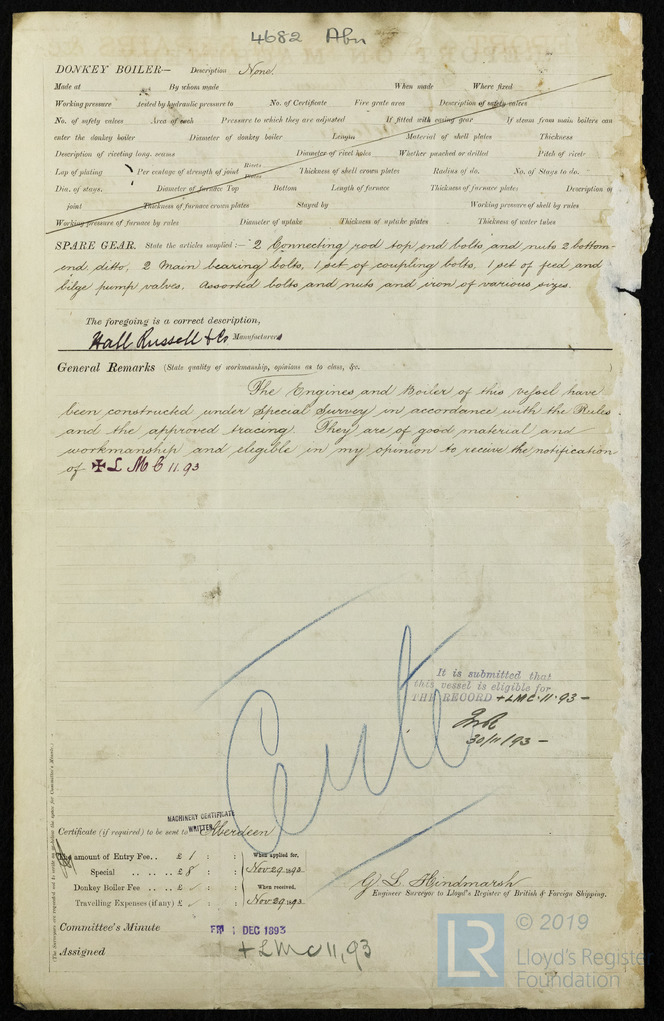 4682 Abn
DONKEY BOILER— Description None.
Made at By whom made When made Where fixed
Working pressure tested by hydraulic pressure to No. of Certificate Fire grate area Description of safety valves
No. of safety valves Area of each Pressure to which they are adjusted If fitted with easing gear If steam from main boilers can
enter the donkey boiler Diameter of donkey boiler Length Material of shell plates Thickness
Description of riveting long. seams Diameter of rivet holes Whether punched or drilled Pitch of rivets
Lap of plating Per centage of strength of joint Rivets Plates Thickness of shell crown plates Radius of do. No. of Stays to do.
Dia. of stays. Diameter of furnace Top Bottom Length of furnace Thickness of furnace plates Description of
joint Thickness of furnace crown plates Stayed by Working pressure of shell by rules
Working pressure of furnace by rules Diameter of uptake Thickness of uptake plates Thickness of water tubes
SPARE GEAR. State the articles supplied :— 2 Connecting rod top end bolts and nuts 2 bottom
end ditto, 2 Main bearing bolts, 1 set of coupling bolts, 1 set of feed and
bilge pump valves. Assorted bolts and nuts and iron of various sizes.
The foregoing is a correct description,
Hall Russell & Co Manufacturers
General Remarks (State quality of workmanship, opinions as to class, &c.
The Engines and Boiler of this vessel have
been constructed under Special Survey in accordance with the Rules
and the approved tracing. They are of good material and
workmanship and elegible in my opinion to receive the notification
of ✠ L M C 11.93
It is submitted that
this vessel is eligible for
THE RECORD + LMC. 11. 93 —
30/11/93 —
MACHINERY CERTIFICATE
WRITTEN
Certificate (if required) to be sent to Aberdeen
The amount of Entry Fee.. £ 1 : : When applied for,
Special .. .. .. £ 8 : : Nov 29 1893
Donkey Boiler Fee .. .. £ : : When received,
Travelling Expenses (if any) £ : : Nov 29 1893
G L Hindmarsh
Engineer Surveyor to Lloyd's Register of British & Foreign Shipping.
Committee's Minute FRI 1 DEC 1893
Assigned + LMC 11,93
© 2019
LR Lloyd's Register
Foundation